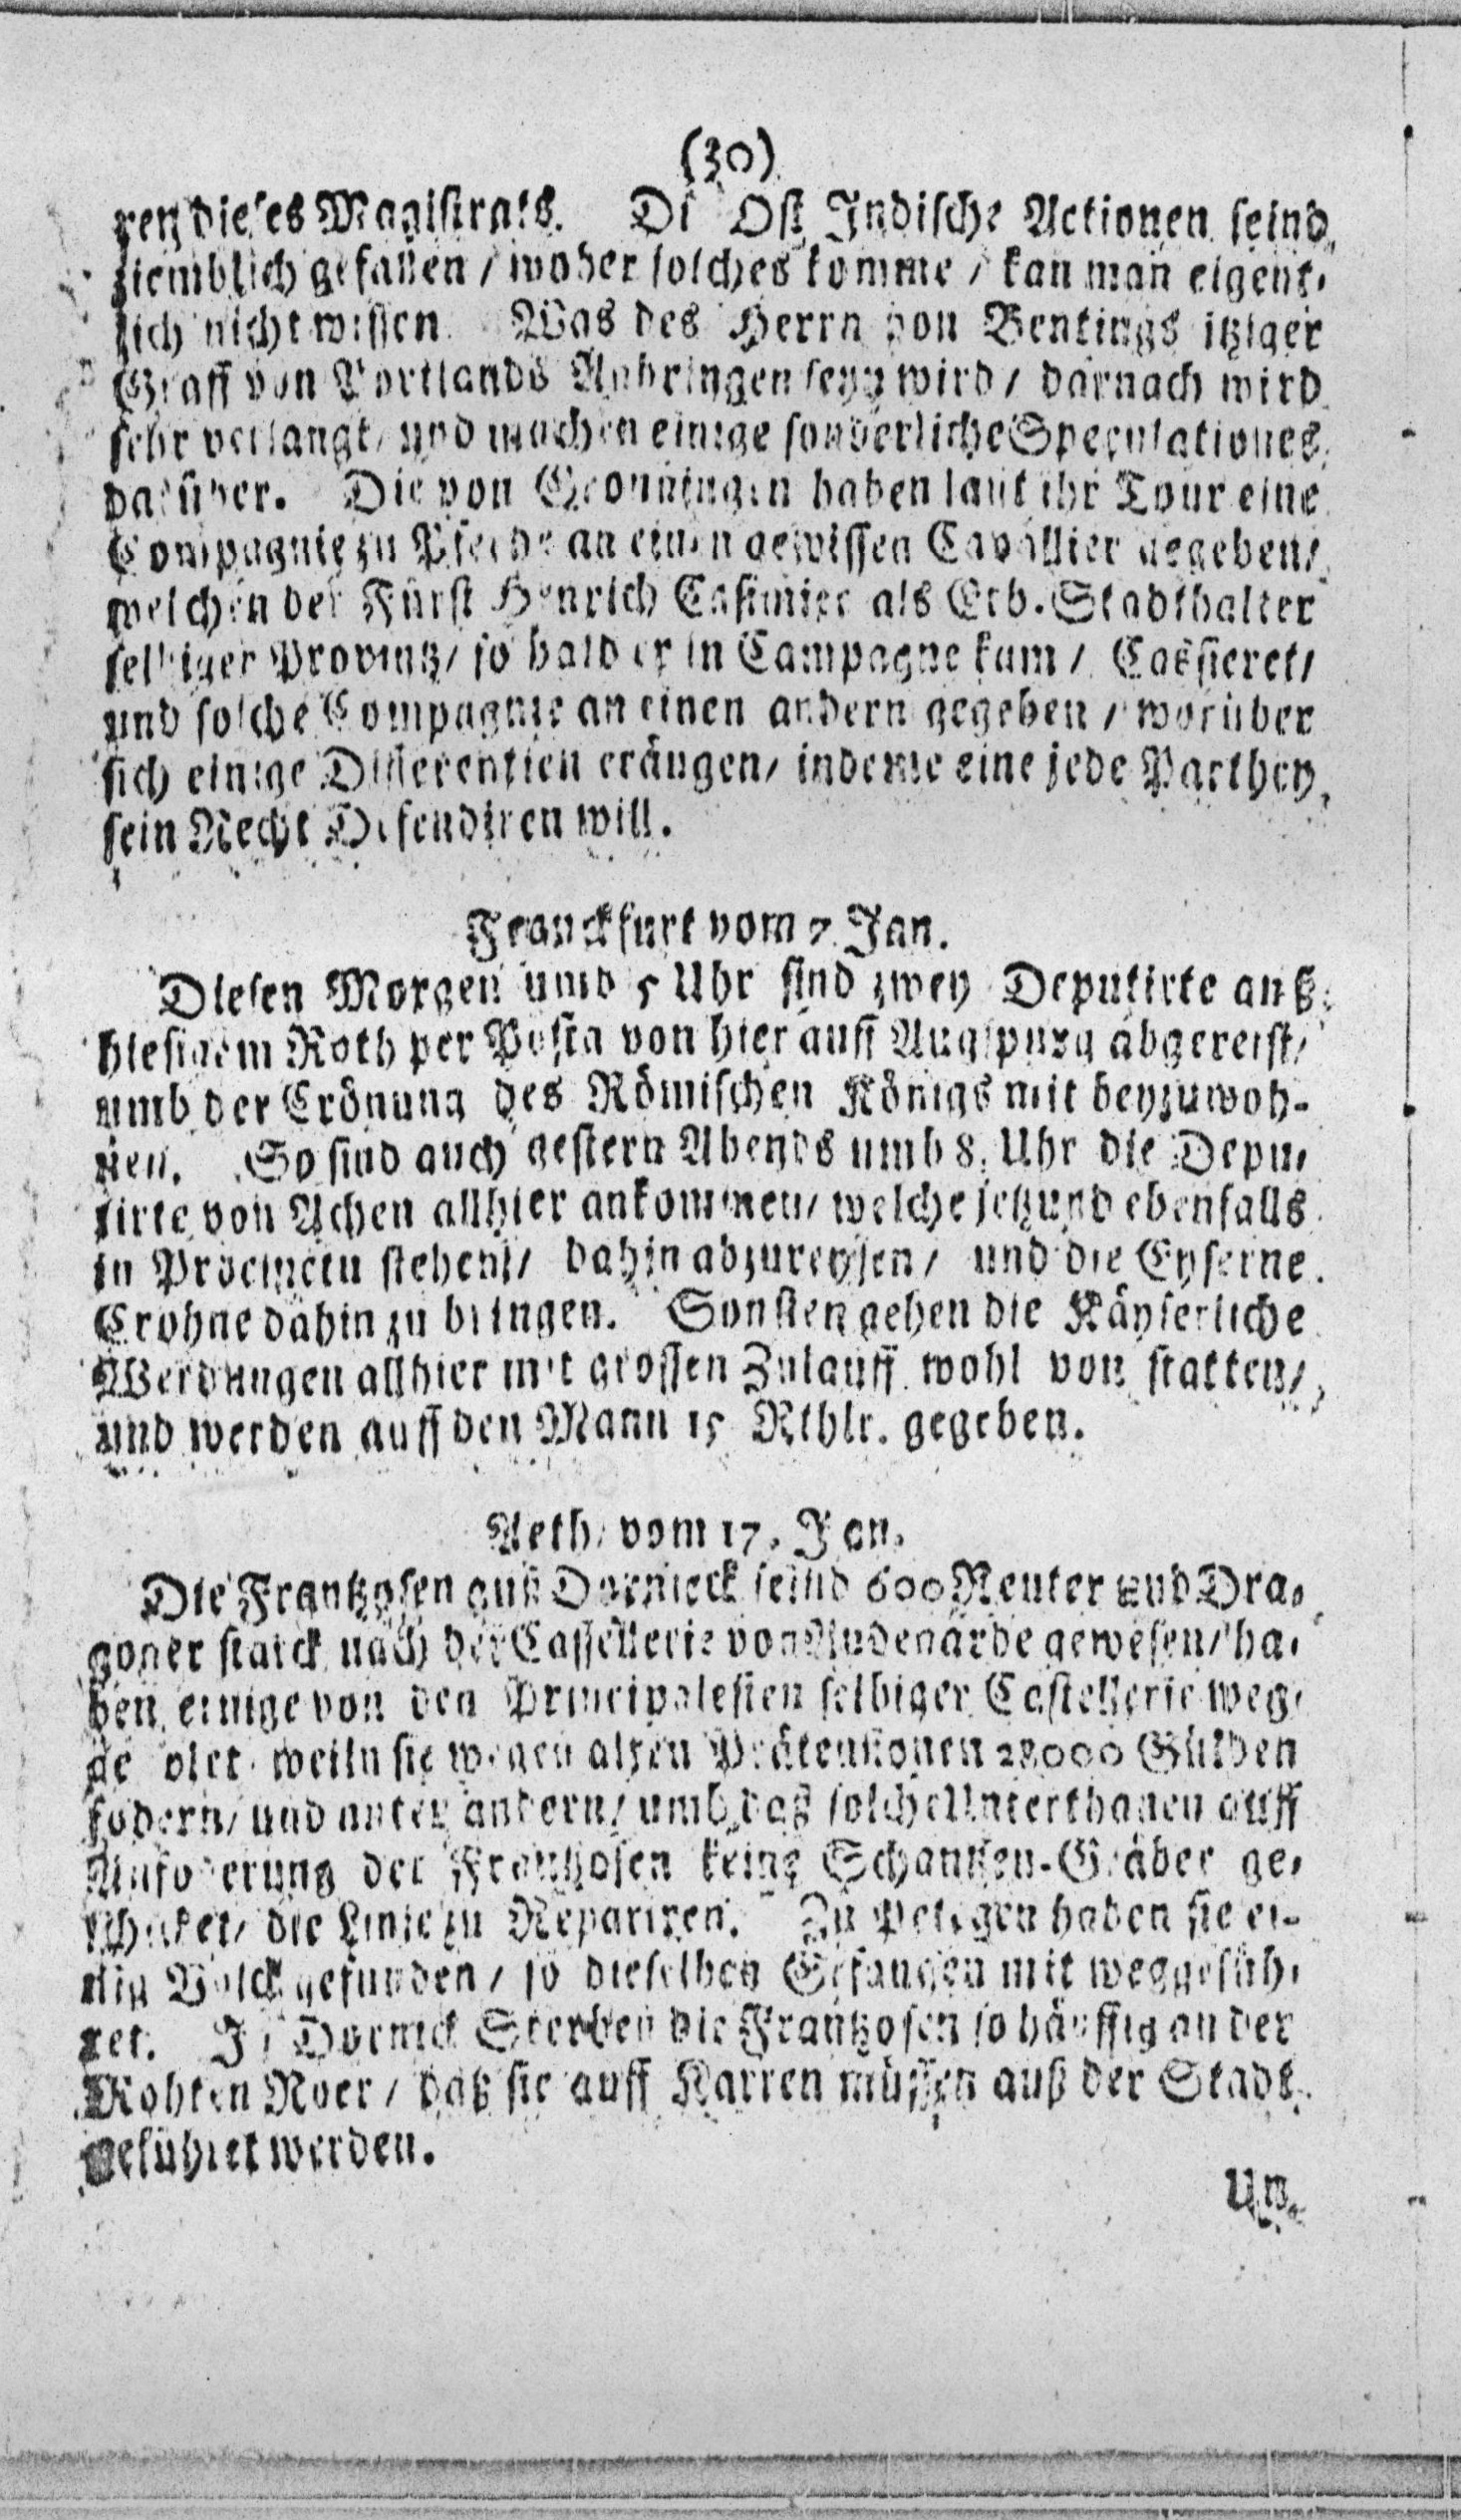 (30)
ren dieses Magistrats. Di Ost Indische Actionen seind
ziemblich gefallen / woher solches komme / kan man eigent-
lich nicht wissen Was des Herrn von Bentings itziger
Graff von Portlands Anbringen seyn wird / darnach wird
sehr verlangt / und machen einige sonderliche Speculationes
darüber. Die von Gronningen haben laut ihr Tour eine
Compagnie zu Pferde an einen gewissen Cavallier gegeben /
welchen der Fürst Henrich Casimier als Erb-Stadthalter
selbiger Provintz / so bald er in Campagne kam / Cassieret /
und solche Compagnie an einen andern gegeben / worüber
sich einige Differentien eräugen / indeme eine jede Parthey
sein Recht Defendiren will.
Franckfurt vom 7. Jan.
Diesen Morgen umb 5 Uhr sind zwey Deputirte auß
hiesigem Rath per Posta von hier auff Augspurg abgereist /
umb der Crönung des Römischen Königs mit beyzuwoh-
nen. So sind auch gestern Abends umb 8. Uhr die Depu-
tirte von Achen allhier ankommen / welche jetzund ebenfalls
in Procinctu stehen / dahin abzureysen / und die Eyserne
Crohne dahin zu bringen. Sonsten gehen die Käyserliche
Werbungen allhier mit grossen Zulauff wohl von statten /
und werden auff den Mann 15 Rthlr. gegeben.
Aeth / vom 17. Jan.
Die Frantzosen auß Dornick seind 600 Reuter und Dra-
goner starck nach der Castellerie von Audenarde gewesen / ha-
ben einige von den Principalesten selbiger Castellerie weg-
ge olet weiln sie wegen alten Prätensionen 28000 Gülden
fodern / und unter andern / umb daß solche Unterthanen auff
Anfoderung der Frantzosen keine Schantzen-Gräber ge-
schicket / die Linie zu Repariren. Zu Petegen haben sie ei-
nig Volck gefunden / so dieselben Gefangen mit weggefüh-
ret. In Dornick Sterben die Frantzosen so häuffig an der
Rohten Roer / daß sie auff Karren müssen auß der Stadt
geführet werden.
Un